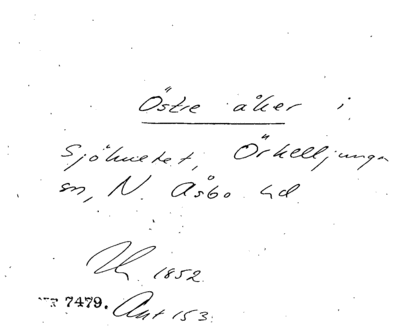 Östre åker i
Sjöhuset, Örkelljunga
sn, N. Åsbo hd
1852
7479. Ant 153